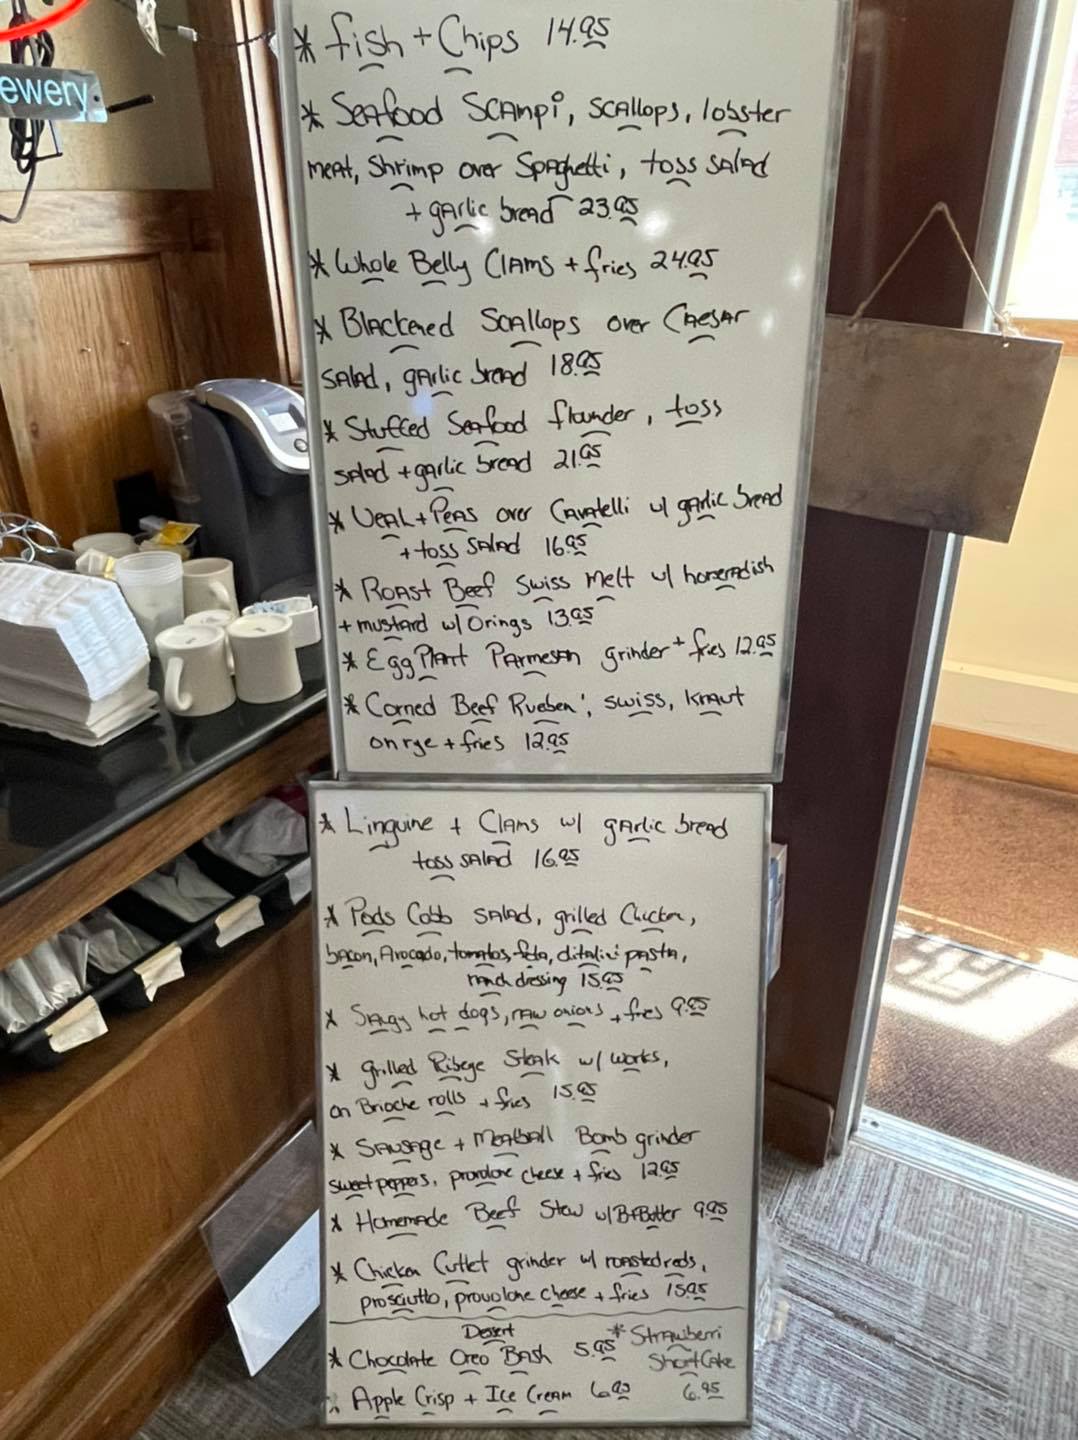 ewery
* fish + Chips 14.95
* Seafood Scampi, scallops, lobster
meat, Shrimp over Spaghetti, toss salad
+ garlic bread 23.95
* Whole Belly Clams + fries 24.95
* Blackened Scallops over Caesar
salad, garlic bread 18.95
* Stuffed Seafood flounder, toss
salad + garlic bread 21.95
* Veal + Peas over Cavatelli w/ garlic bread
+ toss salad 16.95
* Roast Beef Swiss Melt w/ horseradish
+ mustard w/ Orings 13.95
* Egg Plant Parmesan grinder + fries 12.95
* Corned Beef Rueben', swiss, kraut
on rye + fries 12.95
* Linguine + Clams w/ garlic bread
toss salad 16.95
* Pods Cobb salad, grilled Chicken,
bacon, Avocado, tomatos, feta, ditalini pasta,
ranch dressing 15.95
* Saugy hot dogs, raw onions + fries 9.95
* grilled Ribeye Steak w/ works,
on Brioche rolls + fries 15.95
* Sausage + Meatball Bomb grinder
sweet peppers, provolone cheese + fries 12.95
* Homemade Beef Stew w/ B+Butter 9.95
* Chicken Cutlet grinder w/ roasted reds,
prosciutto, provolone cheese + fries 15.95
Dessert
* Chocolate Oreo Bash 5.95
* Strawberri
ShortCake
6.95
* Apple Crisp + Ice Cream 6.95